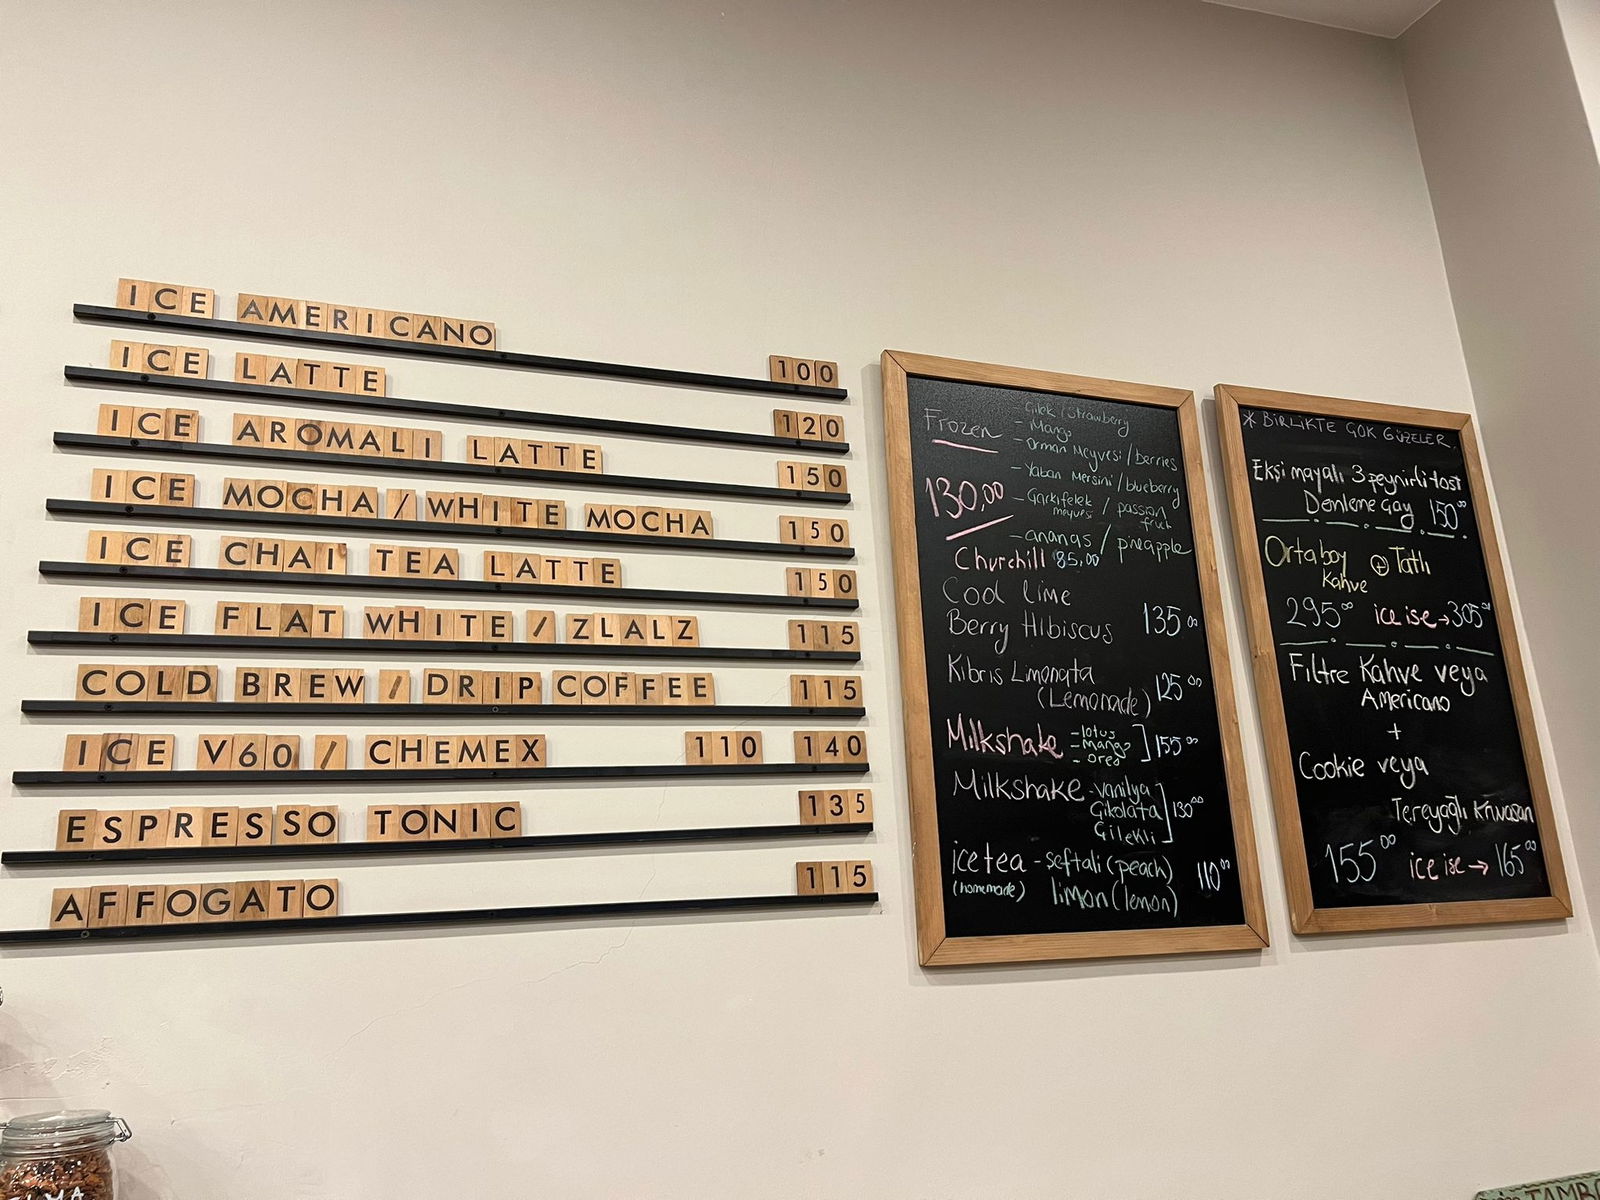 ICE AMERICANO 100
ICE LATTE 120
ICE AROMALI LATTE 150
ICE MOCHA / WHITE MOCHA 150
ICE CHAI TEA LATTE 150
ICE FLAT WHITE / ZLALZ 115
COLD BREW / DRIP COFFEE 115
ICE V60 / CHEMEX 110 140
ESPRESSO TONIC 135
AFFOGATO 115
Frozen
130,00
- Çilek / Strawberry
- Mango
- Orman Meyvesi / berries
- Yaban Mersini / blueberry
- Çarkıfelek meyvesi / passion fruit
- ananas / pineapple
Churchill 85,00
Cool lime
Berry Hibiscus 135 00
Kıbrıs Limonata
(Lemonade) 125 00
Milkshake - lotus
- Mango
- oreo
155 00
Milkshake - vanilya
Çikolata
Çilekli
130 00
ice tea - şeftali (peach)
(homemade) limon (lemon)
110 00
* BİRLİKTE ÇOK GÜZELER
Ekşi mayalı 3 peynirli tost
Demleme çay 150 00
Orta boy Kahve + Tatlı
295 00 ice ise → 305 00
Filtre Kahve veya
Americano
+
Cookie veya
Tereyağlı Kruvasan
155 00 ice ise → 165 00